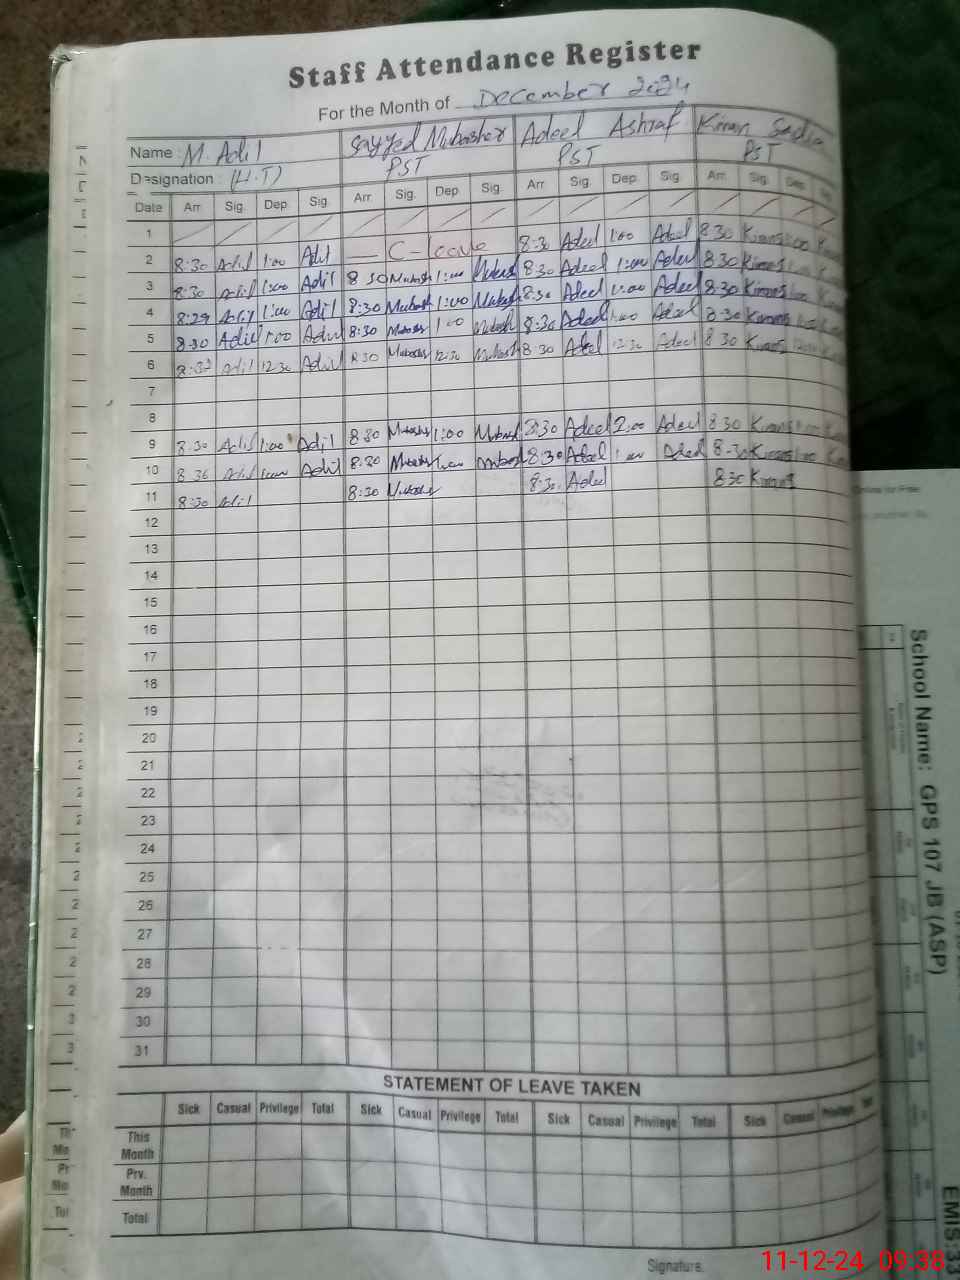 Staff Attendance Register
For the Month of December 2024
Name : M. Adil Sayyed Mubasher Adeel Ashraf Kiran Sadia
Designation : (H.T) PST PST PST
Date Arr. Sig. Dep. Sig. Arr. Sig. Dep. Sig. Arr. Sig. Dep. Sig. Arr. Sig. Dep.
1
2 8:30 Adil 1:00 Adil C- Leave 8:30 Adeel 1:00 Adeel 8 30 Kiran
3 8:30 Adil 1:00 Adil 8 30 Mubash 1:00 Mubash 8:30 Adeel 1:00 Adeel 8:30 Kiran
4 8:29 Adil 1:00 Adil 8:30 Mubash 1:00 Mubash 8:30 Adeel 1:00 Adeel 8:30 Kiran
5 8:30 Adil 1:00 Adil 8:30 Mubash 1:00 Mubash 8:30 Adeel 1:00 Adeel 8:30 Kiran
6 Adil 12:30 Adil 8:30 Mubash 12:30 Mubash 8:30 Adeel 12:30 Adeel 8 30 Kiran
7
8
9 8:30 Adil 1:00 Adil 8:30 Mubash 1:00 Mubash 8:30 Adeel 2:00 Adeel 8 30 Kiran
10 8:30 Adil 1:00 Adil 8:30 Mubash 1:00 Mubash 8:30 Adeel 1:00 Adeel 8-30 Kiran
11 8:30 Adil 8:30 Mubash 8:30 Adeel 8:30 Kiran
12
13
14
15
16
17
18
19
20
21
22
23
24
25
26
27
28
29
30
31
STATEMENT OF LEAVE TAKEN
Sick Casual Privilege Total Sick Casual Privilege Total Sick Casual Privilege Total Sick Casual Privilege
This Month
Prv. Month
Total
Signature.
School Name: GPS 107 JB (ASP)
EMIS:33
11-12-24 09:38